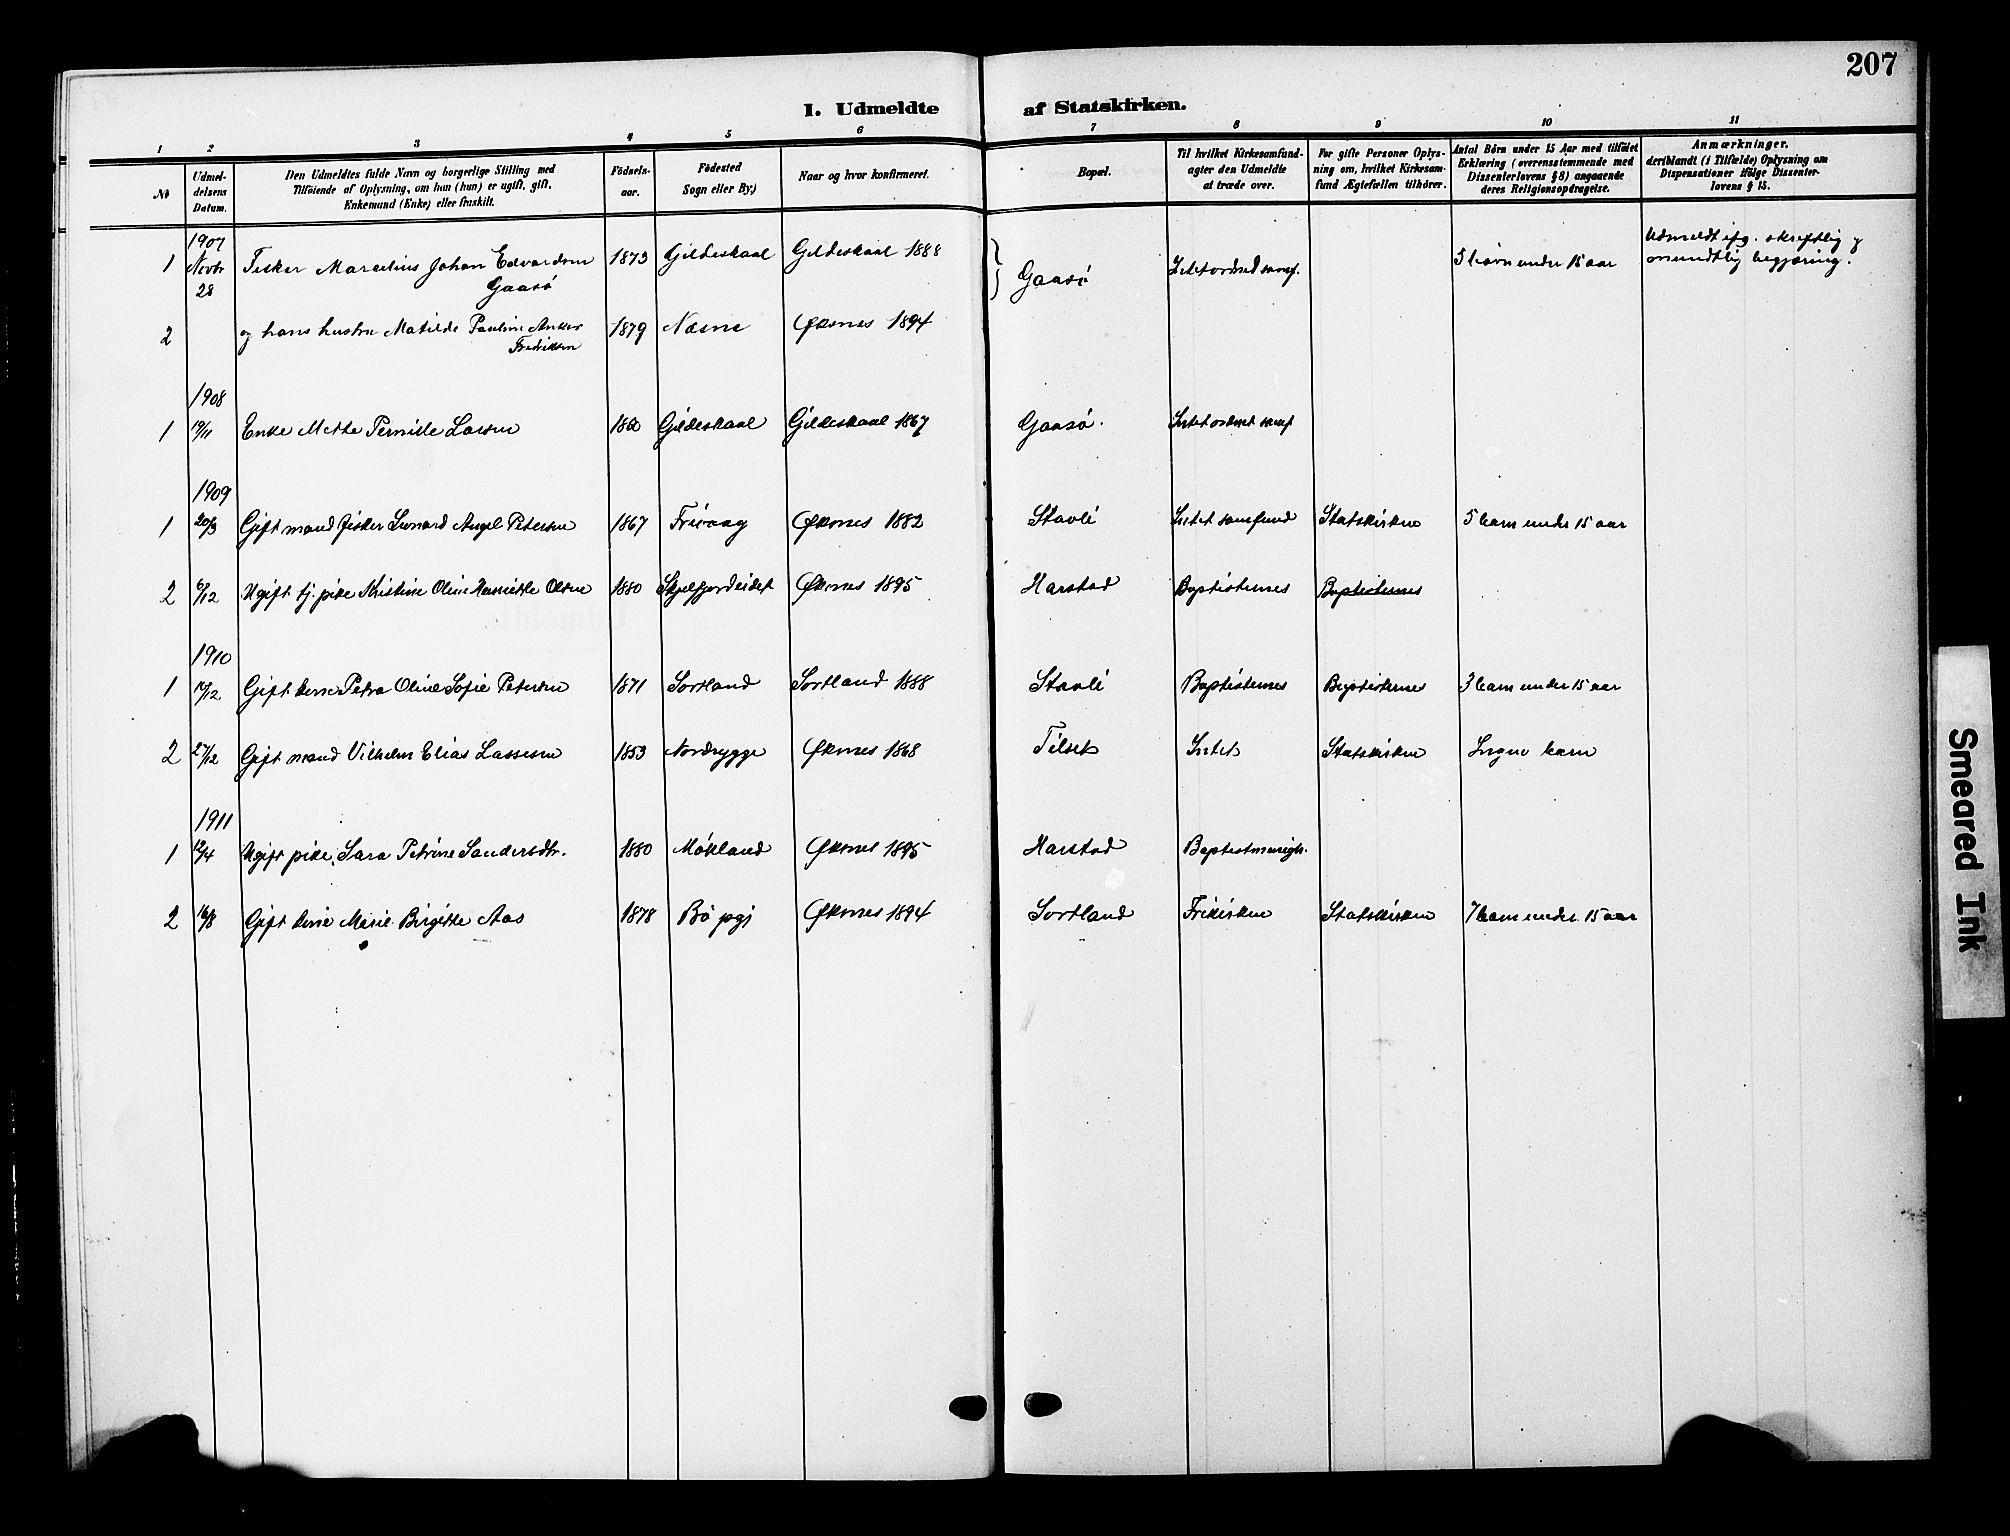 207
I. Udmeldte af Statskirken.
1 2 3 4 5 6 7 8 9 10 11
No
Udmel-
delsens
Datum.
Den Udmeldtes fulde Navn og borgerlige Stilling med
Tilføiende af Oplysning, om hun (hun) er ugift, gift,
Enkemand (Enke) eller fraskilt.
Fødsels-
aar.
Fødested
Sogn eller By;)
Naar og hvor konfirmeret.
Bopæl.
Til hvilket Kirkesamfund-
agter den Udmeldte
at træde over.
For gifte Personer Oplys-
ning om, hvilket Kirkesam-
fund Ægtefællen tilhører.
Antal Børn under 15 Aar med tilføiet
Erklæring (overensstemmende med
Dissenterlovens § 8) angaaende
deres Religionsopdragelse.
Anmærkninger,
deriblandt (i Tilfælde) Oplysning om
Dispensationer ifølge Dissenter-
lovens § 15.
1907
1 Novbr 28 Fisker Marcelius Johan Edvardsen Gaasø 1873 Gildeskaal Gildeskaal 1888 Gaasø Intet ordned samf. 5 børn under 15 aar Udmeldt ifg. skriftlig og mundtlig begjæring.
2 og hans hustru Matilde Pauline Anker Fredriksen 1879 Næsne Øksnes 1894
1908
1 19/11 Enke Mette Pernille Larsen Gildeskaal Gildeskaal 1867 Gaasø. Intet ordnet samf
1909
1 20/3 Gift mand fisker Leonard Angel Petersen 1867 Frivaag Øksnes 1882 Stavli Intet samfund Statskirken 5 barn under 15 aar
2 6/12 Ugift tj. pike Kristine Oline Henriette Olsen 1880 Skjelfjordeidet Øksnes 1895 Harstad Baptisternes Baptisternes
1910
1 12/12 Gift kone Petra Oline Sofie Petersen 1871 Sortland Sortland 1888 Stavli Baptisternes Baptisternes 3 barn under 15 aar
2 27/12 Gift mand Vilhelm Elias Lassesen 1853 Nordrygge Øksnes 1868 Tilset Intet Statskirken Ingen barn
1911
1 12/4 Ugift pike Sara Petrine Sandersdtr. 1880 Møkland Øksnes 1895 Harstad Baptistmenigh.
2 16/8 Gift kone Marie Birgitte Aas 1878 Bø pgj Øksnes 1894 Sortland Frikirken Statskirken 7 barn under 15 aar
Smeared Ink